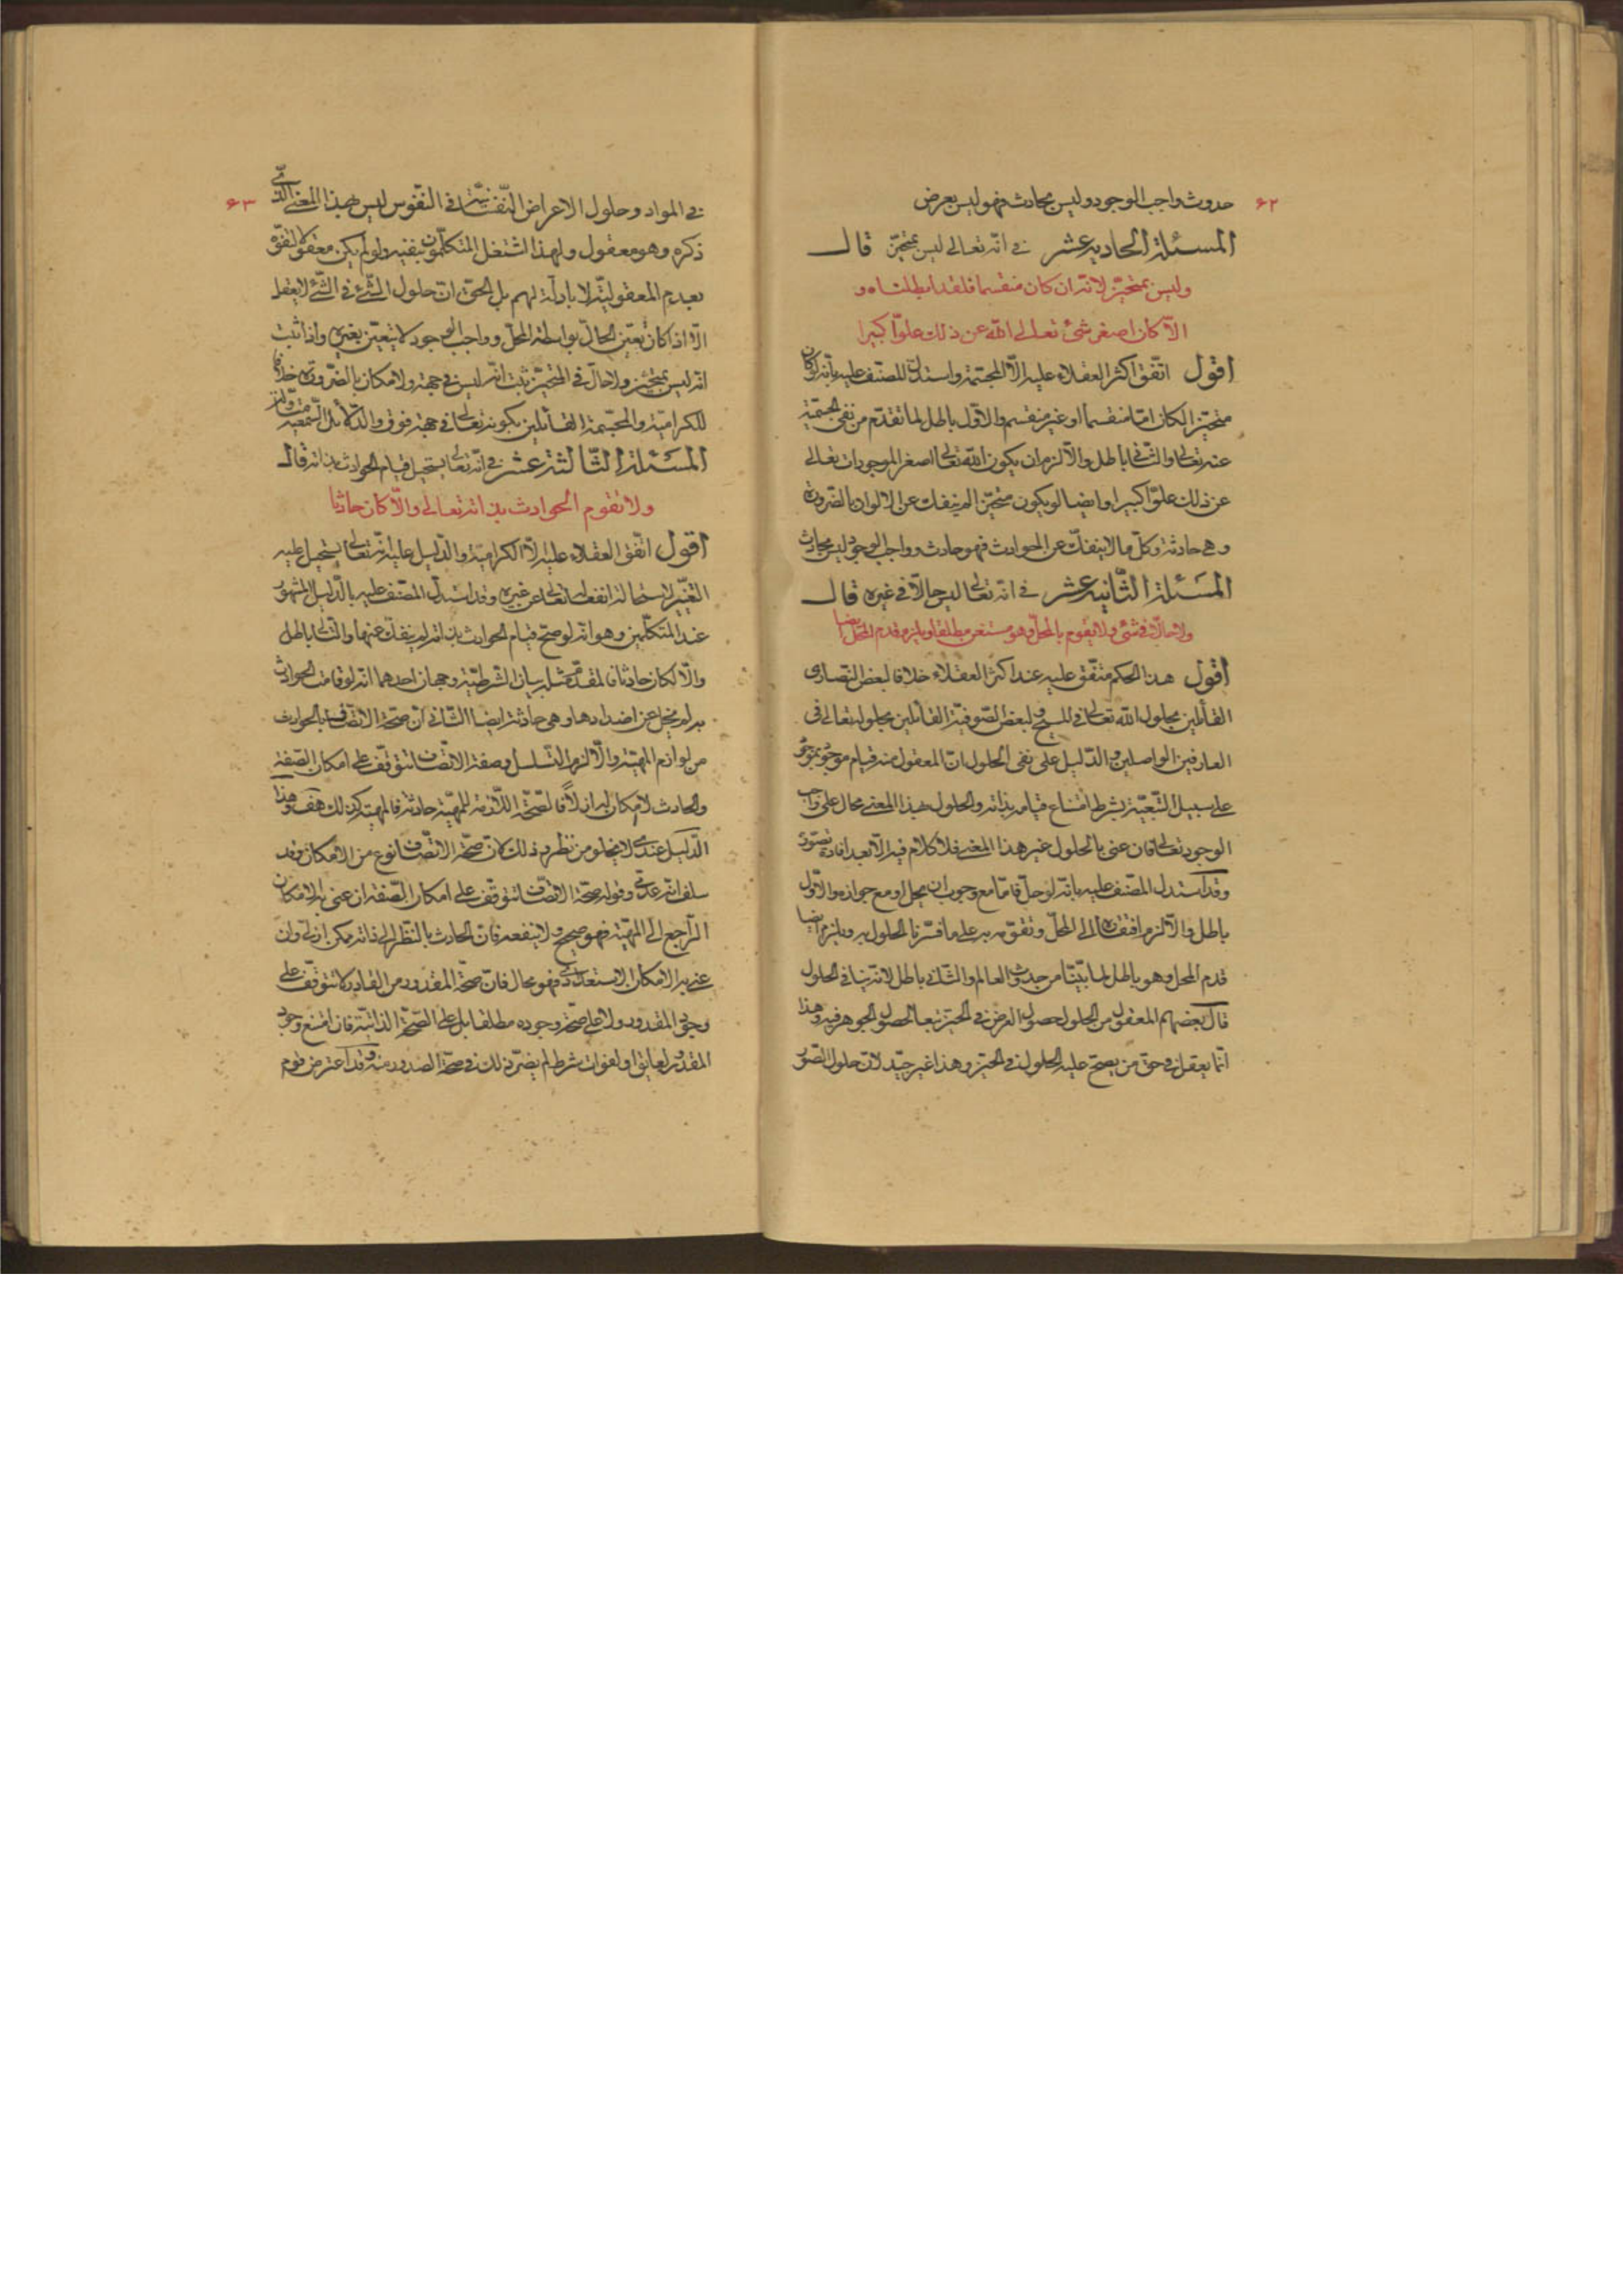 ۶۲
حدوث واجب الوجود وليس بحادث فهو ليس بعرض
المسئلة الحادية عشر في انّه تعالى ليس بمتحيّز قال
وليس بمتحيّز لانّه ان كان منقسما فلقد ابطلناه و
الّا كان اصغر شئ تعالى الله عن ذلك علوّا كبيرا
اقول اتّفق اكثر العقلاء عليه الّا المجسّمة واستدلّ المصنّف عليه بانّه لو كان
متحيّزا لكان امّا منقسما او غير منقسم والاوّل باطل لما تقدّم من نفى الجسميّة
عنه تعالى والثّانى باطل والّا لزم ان يكون الله تعالى اصغر الموجودات تعالى
عن ذلك علوّا كبيرا وايضا لو يكون متحيّزا لم ينفك عن الاكوان بالضّرورة
وهي حادثة وكلّ ما لا ينفكّ عن الحوادث فهو حادث وواجب الوجود ليس بحادث
المسئلة الثّانية عشر في انّه تعالى ليس حالّا في غيره قال
ولا حالّا في شئ ولا يقوم بالمحلّ وهو مستغن مطلقا ويلزم قدم المحلّ ايضا
اقول هذا الحكم متّفق عليه عند اكثر العقلاء خلافا لبعض النّصارى
القائلين بحلول الله تعالى في المسيح ولبعض الصّوفيّة القائلين بحلوله تعالى في
العارفين الواصلين والدّليل على نفى الحلول انّ المعقول منه قيام موجود بموجود
على سبيل التّبعيّة بشرط امتناع قيامه بذاته والحلول بهذا المعنى محال على واجب
الوجود تعالى فان عنى بالحلول غير هذا المعنى فلا كلام فيه الّا بعد افادة تصوّره
وقد استدل المصنّف عليه بانّه لو حلّ فامّا مع وجوب ان يحل او مع جوازه والاوّل
باطل والّا لزم افتقاره الى المحلّ وتقوّمه به على ما فسّرنا الحلول به ويلزم ايضا
قدم المحل وهو باطل لما بيّنّا من حدوث العالم والثّاني باطل لانّه ينافي الحلول
قال بعضهم المعقول من الحلول حصول العرض في الحيّز تبعا لحصول الجوهر فيه وهذا
انّما يعقل في حق من يصحّ عليه الحلول في الحيّز وهذا غير جيّد لانّ حلول الصّور
۶۳
في المواد وحلول الاعراض النّفسانيّة في النّفوس ليس بهذا المعنى الّذى
ذكره وهو معقول ولهذا اشتغل المتكلّمون بنفيه ولو لم يكن معقولا لنفوه
بعدم المعقوليّة لا بادلّة لهم بل الحق انّ حلول الشّئ في الشّئ لا يعقل
الّا اذا كان تعيّن الحالّ بواسطة المحلّ وواجب الوجود لا يتعيّن بغيره واذا ثبت
انّه ليس بمتحيّز ولا حالّ في المتحيّز ثبت انّه ليس في جهة ولا مكان بالضّرورة خلافا
للكرّاميّة والمجسّمة القائلين بكونه تعالى في جهة فوق والدّلائل السّمعيّة متأوّلة
المسئلة الثّالثة عشر في انّه تعالى يستحيل قيام الحوادث بذاته قال
ولا تقوم الحوادث بذاته تعالى والّا كان حادثا
اقول اتّفق العقلاء عليه الّا الكراميّة والدّليل عليه انّه تعالى يستحيل عليه
التغيّر لاستحالة انفعاله تعالى عن غيره وقد استدلّ المصنّف عليه بالدّليل المشهور
عند المتكلّمين وهو انّه لو صحّ قيام الحوادث بذاته لم ينفك عنها والتّالى باطل
والّا لكان حادثا فالمقدّم مثله بيان الشّرطيّة وجهان احدهما انّه لو قامت الحوادث
به لم يخل عن اضدادها وهي حادثة ايضا الثّانى انّ صحّة الاتّصاف بالحوادث
من لوازم المهيّة والّا لزم التّسلسل وصفة الاتّصاف تتوقّف على امكان الصّفة
والحادث لا مكان له ازلاً فالصّحّة اللّازمة للمهيّة حادثة فالمهيّة كذلك هف وهذا
الدّليل عندى لا يخلو من نظر وذلك لانّ صحّة الاتّصاف نوع من الامكان وقد
سلف انّه عدمى وقوله صحّة الاتّصاف تتوقّف على امكان الصّفة ان عنى به الامكان
الرّاجع الى المهيّة فهو صحيح ولا ينفعه فانّ الحادث بالنّظر الى ذاته ممكن ازلى وان
عنى به الامكان الاستعدادى فهو محال فانّ صحّة المقدور من القادر لا تتوقّف على
وجود المقدور ولا على صحّة وجوده مطلقا بل على الصّحّة الذاتيّة فان امتنع وجود
المقدور لعائق او لفوات شرط لم يضرّ ذلك في صحّة الصدور منه وقد اعترض قوم